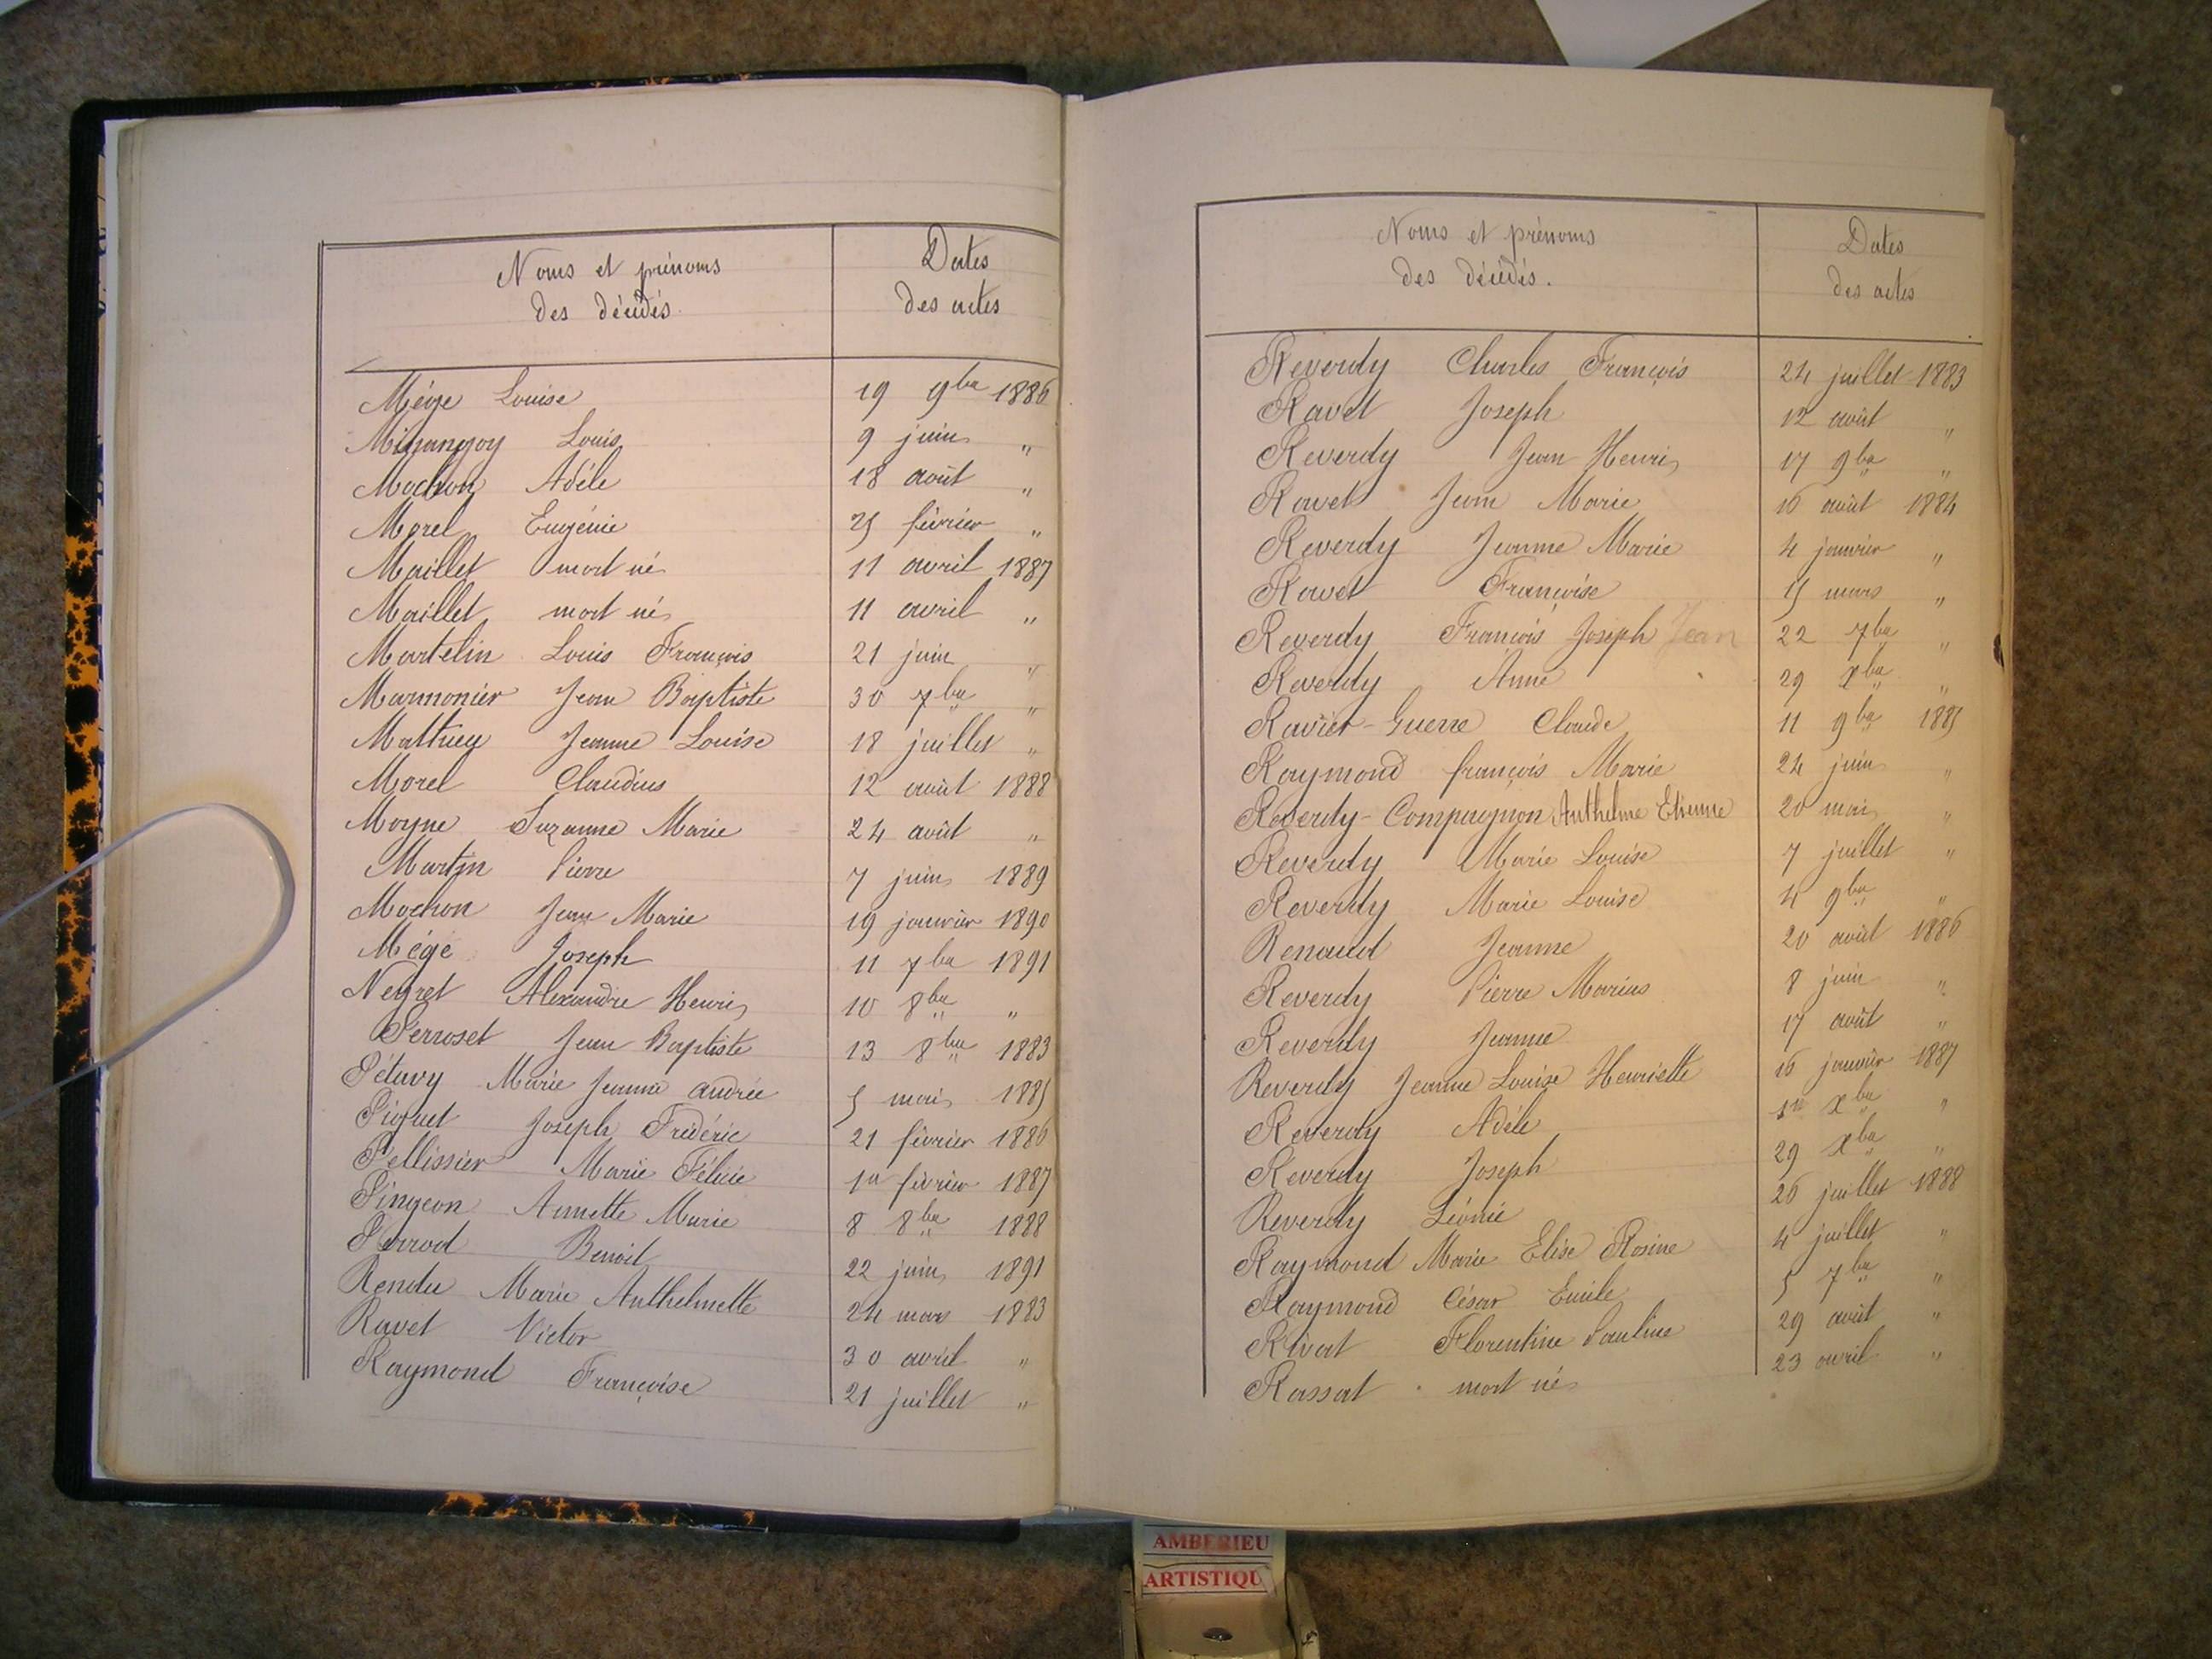 Noms et prénoms
des décédés
Dates
des actes
Mége Louise 19 9bre 1886
Louis 9 juin "
Mochon Adéle 18 août "
Morel Eugénie 25 février "
Maillet mort né 11 avril 1887
Maillet mort né 11 avril "
Martelin Louis François 21 juin "
Marmonier Jean Baptiste 30 7bre "
Mathieu Jeanne Louise 18 juillet "
Morel Claudius 12 août 1888
Moyne Suzanne Marie 24 août "
Martin Pierre 7 juin 1889
Mochon Jean Marie 19 janvier 1890
Mégé Joseph 11 7bre 1891
Neyret Alexandre Henri 10 8bre "
Perroset Jean Baptiste 13 8bre 1883
Pétuvy Marie Jeanne andrée 5 mai 1885
Piquet Joseph Frédéric 21 février 1886
Pellissier Marie Félicie 1er février 1887
Pingeon Annette Marie 8 8bre 1888
Perrod Benoit 22 juin 1891
Rendu Marie Anthelmette 24 mars 1883
Ravet Victor 30 avril "
Raymond Françoise 21 juillet "
Noms et prénoms
des décédés.
Dates
des actes
Reverdy Charles François 24 juillet 1883
Ravet Joseph 12 août "
Reverdy Jean Henri 17 9bre "
Ravet Jean Marie 16 août 1884
Reverdy Jeanne Marie 4 janvier "
Ravet Françoise 15 mars "
Reverdy François Joseph Jean 22 7bre "
Reverdy Anne 29 Xbre "
Ravier-Guerre Claude 11 9bre 1885
Raymond françois Marie 24 juin "
Reverdy-Compagnon Anthelme Etienne 20 mai "
Reverdy Marie Louise 7 juillet "
Reverdy Marie Louise 4 9bre "
Renaud Jeanne 20 août 1886
Reverdy Pierre Marius 8 juin "
Reverdy Jeanne 17 août "
Reverdy Jeanne Louise Henriette 16 janvier 1887
Reverdy Adéle 1er Xbre "
Reverdy Joseph 29 Xbre "
Reverdy Léonie 26 juillet 1888
Raymond Marie Elise Rosine 4 juillet "
Raymond César Emile 5 7bre "
Rivat Florentine Pauline 29 août "
Rassat mort né 23 avril "
AMBERIEU
ARTISTIQU